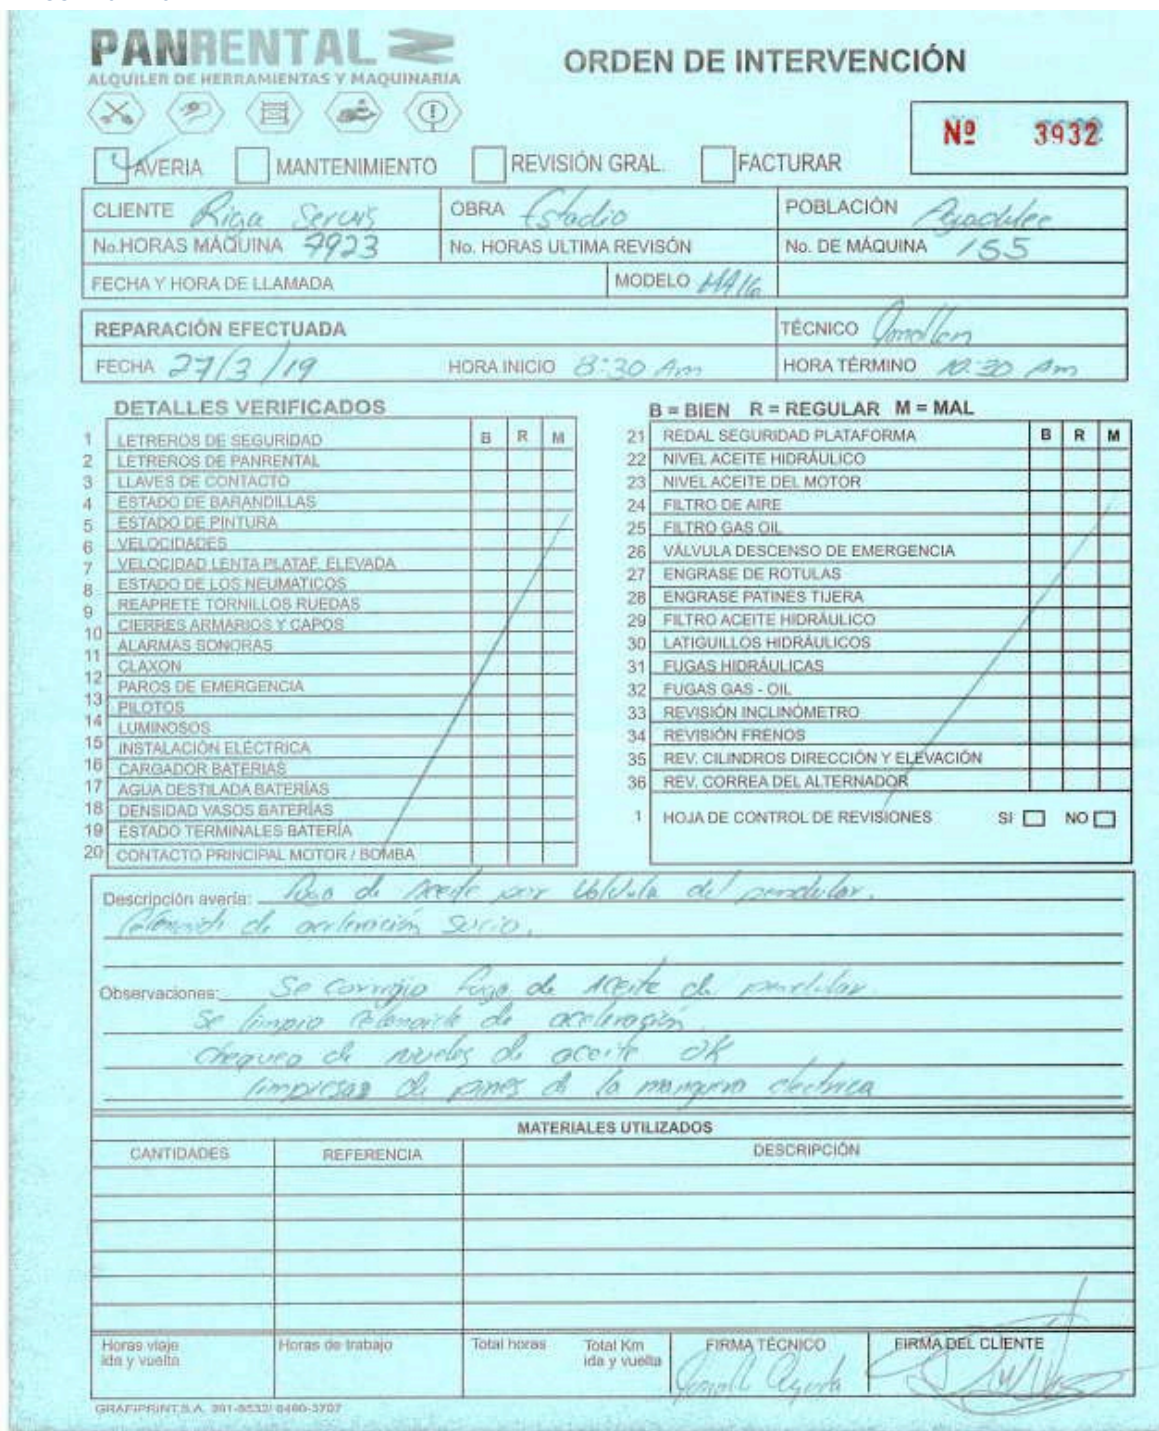 PANRENTAL
ALQUILER DE HERRAMIENTAS Y MAQUINARIA
ORDEN DE INTERVENCIÓN
Nº 3932
AVERIA MANTENIMIENTO REVISIÓN GRAL. FACTURAR
CLIENTE Riga Servis OBRA Estadio POBLACIÓN
No.HORAS MÁQUINA 7923 No. HORAS ULTIMA REVISÓN No. DE MÁQUINA 155
FECHA Y HORA DE LLAMADA MODELO HA16
REPARACIÓN EFECTUADA TÉCNICO
FECHA 27/3/19 HORA INICIO 8:30 Am HORA TÉRMINO 10:30 Am
DETALLES VERIFICADOS
B R M
1 LETREROS DE SEGURIDAD
2 LETREROS DE PANRENTAL
3 LLAVES DE CONTACTO
4 ESTADO DE BARANDILLAS
5 ESTADO DE PINTURA
6 VELOCIDADES
7 VELOCIDAD LENTA PLATAF. ELEVADA
8 ESTADO DE LOS NEUMATICOS
9 REAPRETE TORNILLOS RUEDAS
10 CIERRES ARMARIOS Y CAPOS
11 ALARMAS SONORAS
12 CLAXON
13 PAROS DE EMERGENCIA
14 PILOTOS
15 LUMINOSOS
16 INSTALACIÓN ELÉCTRICA
17 CARGADOR BATERIAS
18 AGUA DESTILADA BATERÍAS
19 DENSIDAD VASOS BATERÍAS
20 ESTADO TERMINALES BATERÍA
CONTACTO PRINCIPAL MOTOR / BOMBA
B = BIEN R = REGULAR M = MAL
B R M
21 REDAL SEGURIDAD PLATAFORMA
22 NIVEL ACEITE HIDRÁULICO
23 NIVEL ACEITE DEL MOTOR
24 FILTRO DE AIRE
25 FILTRO GAS OIL
26 VÁLVULA DESCENSO DE EMERGENCIA
27 ENGRASE DE ROTULAS
28 ENGRASE PATINES TIJERA
29 FILTRO ACEITE HIDRÁULICO
30 LATIGUILLOS HIDRÁULICOS
31 FUGAS HIDRÁULICAS
32 FUGAS GAS - OIL
33 REVISIÓN INCLINÓMETRO
34 REVISIÓN FRENOS
35 REV. CILINDROS DIRECCIÓN Y ELEVACIÓN
36 REV. CORREA DEL ALTERNADOR
1 HOJA DE CONTROL DE REVISIONES SI NO
Descripción avería: Fuga de Aceite por Valvula del pendular.
de aceleración sucio.
Observaciones: Se corrigio fuga de Aceite de pendular
Se limpio de aceleración
chequeo de niveles de aceite OK
limpiesas de pines de la manguera electrica
MATERIALES UTILIZADOS
CANTIDADES REFERENCIA DESCRIPCIÓN
Horas viaje ida y vuelta Horas de trabajo Total horas Total Km ida y vuelta FIRMA TÉCNICO FIRMA DEL CLIENTE
GRAFIPRINT S.A.